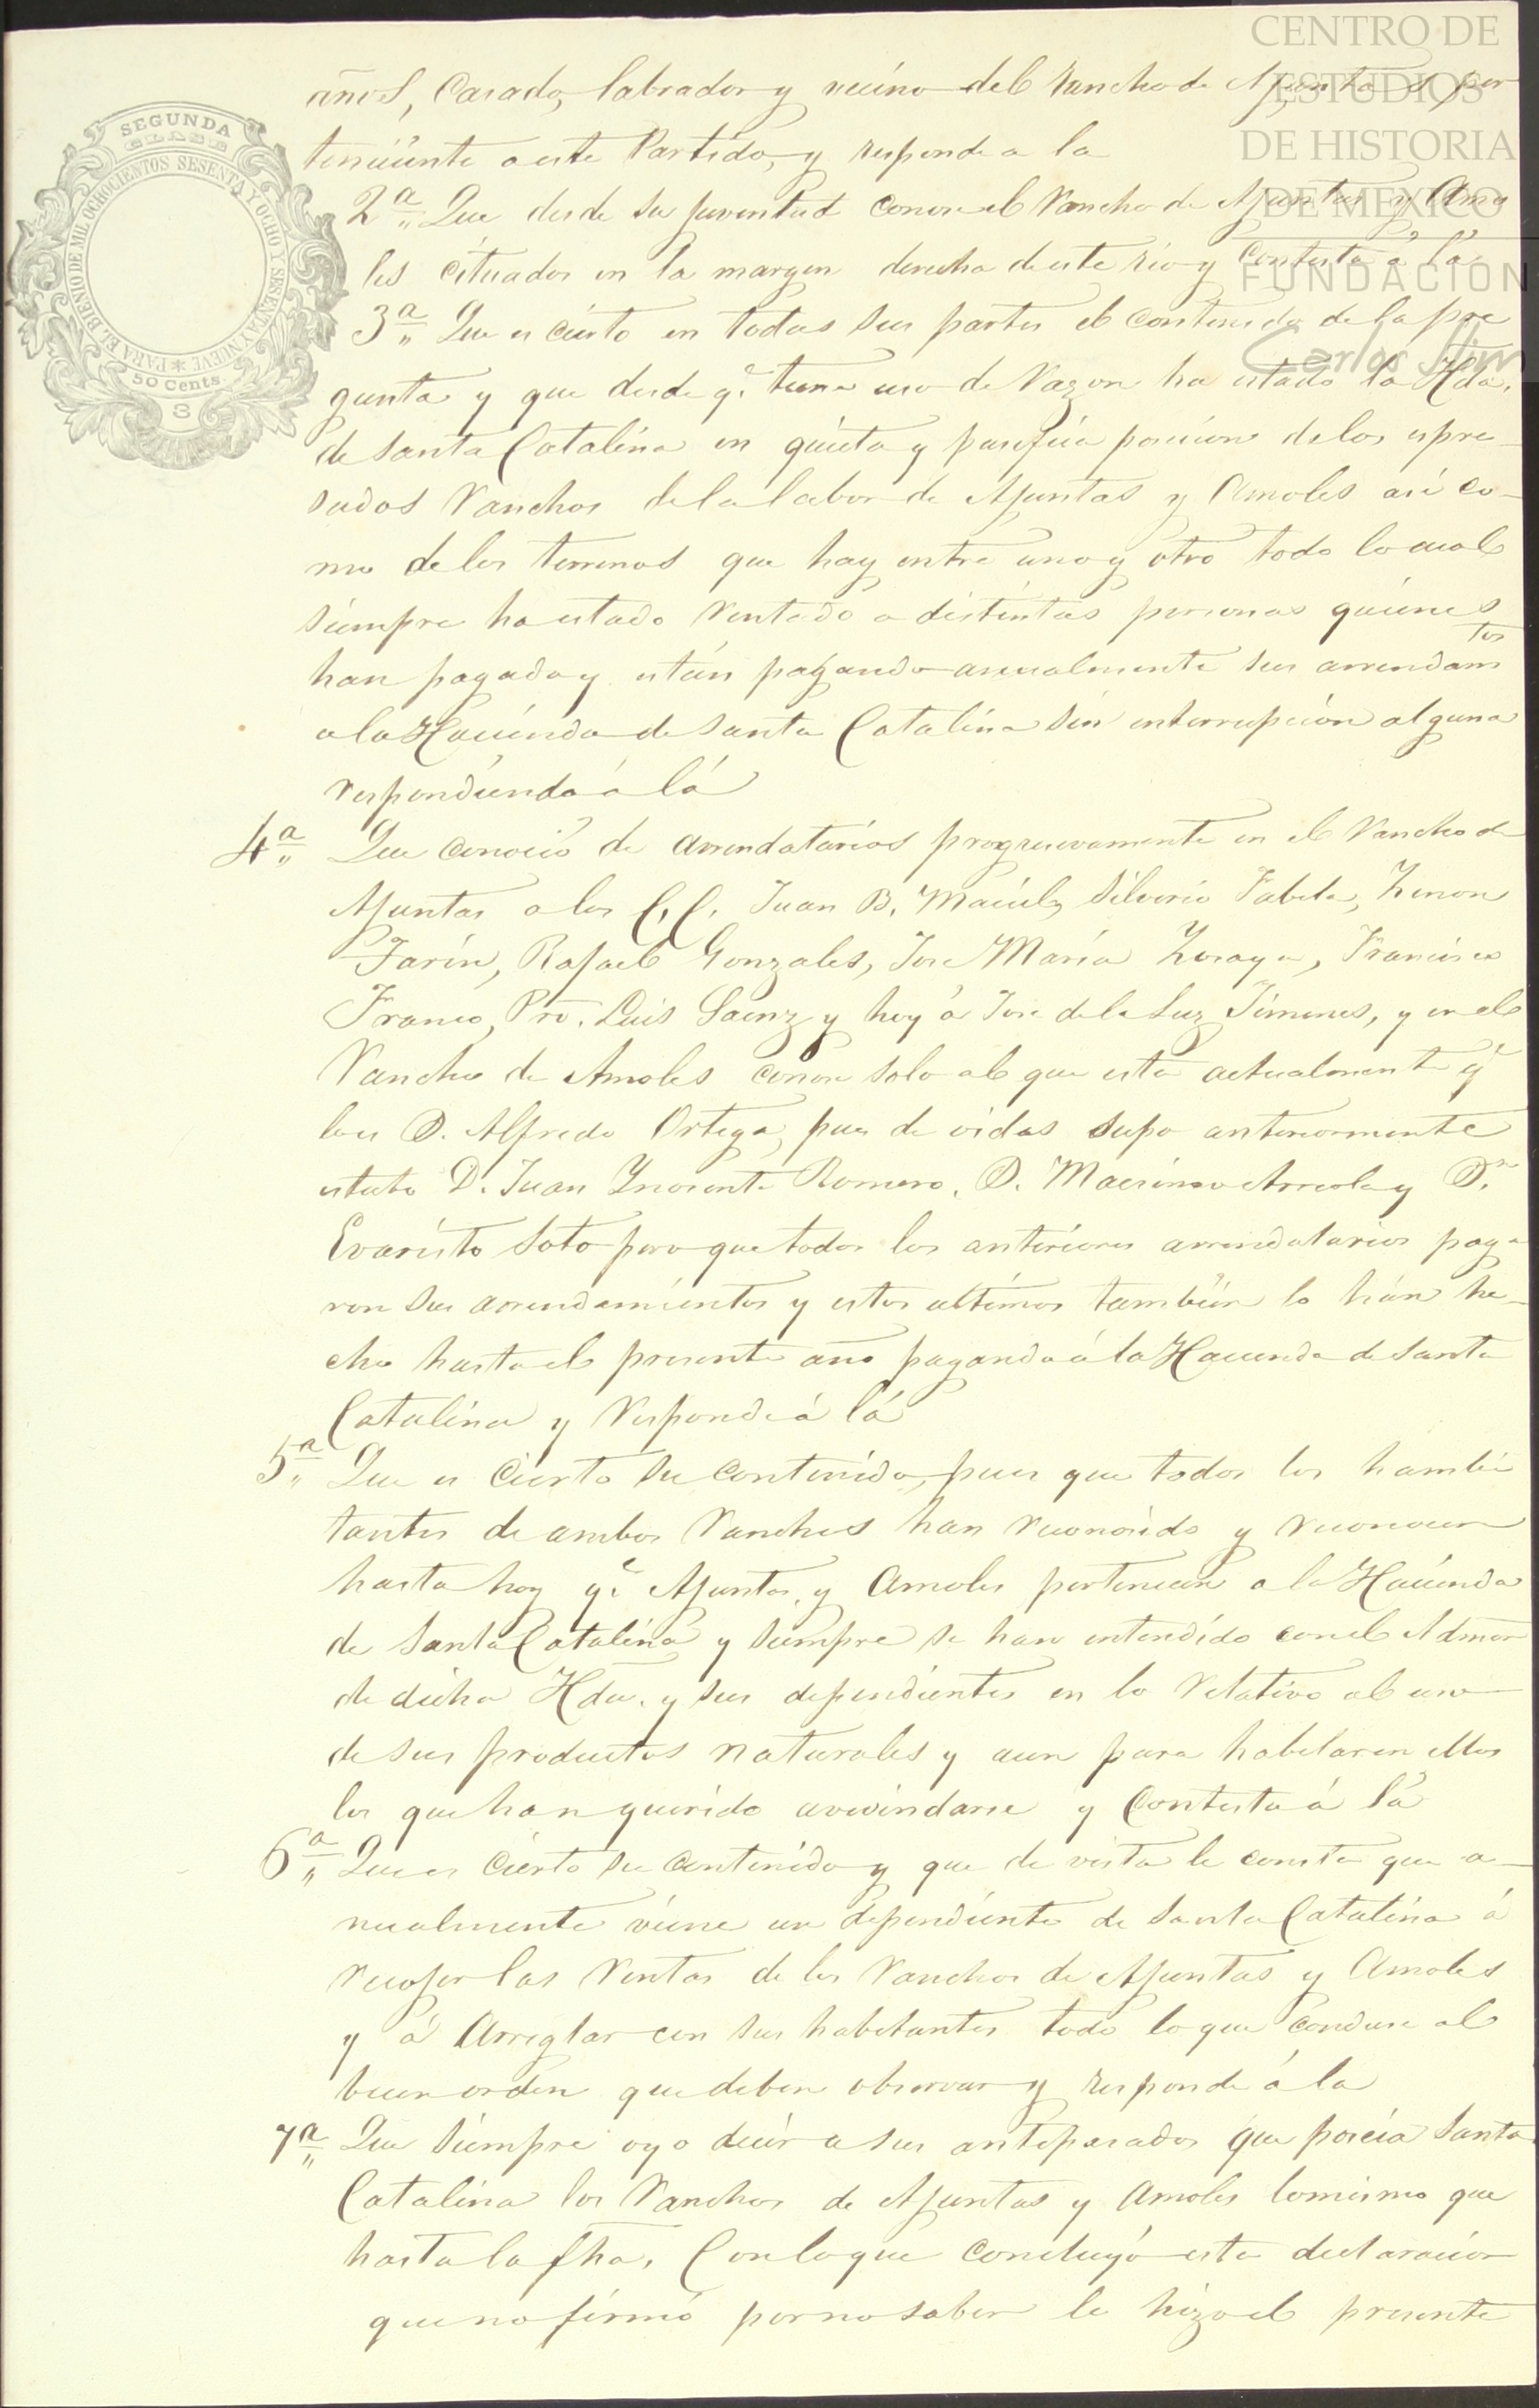 CENTRO DE
ESTUDIOS
DE HISTORIA
DE MEXICO
FUNDACIÓN
Carlos Slim
SEGUNDA
CLASE
PARA EL BIENIO DE MIL OCHOCIENTOS SESENTA Y OCHO Y SESENTA Y NUEVE
50 Cents.
años, Casado, labrador y vecino del rancho de Ajuntas per
teneciente a este Partido, y responde a la
2ª Que desde su juventud conose el Rancho de Ajuntas y Amo
les cituados en la margen derecha de este rio y Contesta á la
3ª Que es cierto en todas sus partes el contenido de la pre
gunta y que desde qe. tiene uso de Razon ha estado la Hda.
de Santa Catalina en quieta y pasifica posicion de los espre-
sados Ranchos de la labor de Ajuntas y Amoles asi co-
mo de los terrenos que hay entre uno y otro todo lo cual
siempre ha estado Rentado a distintas personas quienes
han pagado y están pagando anualmente sus arrendamtos
a la Hacienda de Santa Catalina sin interrupción alguna
respondiendo á lá
4ª Que conoció de Arrendatarios progresivamente en el Rancho de
Ajuntas a los C.C. Juan B. Maciel, Silverio Fabela, Zenon
Farin, Rafael Gonzales, Jose María Zuraya, Francisco
Franco, Pro. Luis Saenz y hoy á Jose de la Luz Jimenes, y en el
Rancho de Amoles conose solo al que esta actualmente q
lo es D. Alfredo Ortega, pues de oidas supo anteriormente
estubo D. Juan Ynosente Romero, D. Macsimo Arreola y Dn.
Evaristo Soto pero que todos los anteriores arrendatarios paga
ron sus arrendamientos y estos ultimos tambien lo hán he-
cho hasta el presente año pagando á la Hacienda de Santa
Catalina y Responde á lá
5ª Que es Cierto su contenido, pues que todos los hambi
tantes de ambos Ranchos han reconosido y reconocen
hasta hoy qe. Ajuntas y Amoles pertenecen a la Hacienda
de Santa Catalina y siempre se han entendido con el Admor
de dicha Hda. y sus dependientes en lo Relativo al uso
de sus productos naturales y aun para habitar en ellos
los que han querido avecindarse y Contesta á la
6ª Que es Cierto su contenido y que de vista le consta que a-
nualmente viene un dependiente de Santa Catalina á
recojer las Rentas de los Ranchos de Ajuntas y Amoles
y á Arreglar con sus habitantes todo lo que conduse al
buen orden que deben observar y responde á la
7ª Que siempre oyo decir a sus antepasados que poseia Santa
Catalina los Ranchos de Ajuntas y Amoles lo mismo que
hasta la fha. Con lo que concluyó esta declaracion
que no firmó por no saber lo hizo el presente